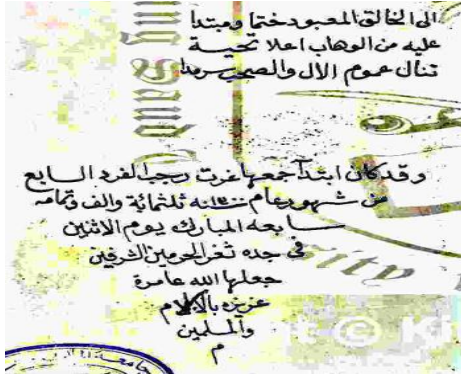 الى الخالق المعبود ختما ومبتدا
عليه من الوهاب اعلا تحية
تنال عموم الال والصحب سرمدا
وقد كان ابتدآ جمعها غرت رجب الفرد السابع
من شهور عام سنه ١٣٠٠ ثلثمائة والف وتمامه
سابعه المبارك يوم الاثنين
في جده ثغر الحرمين الشرفين
جعلها الله عامرة
عزيزه بالاسلام
والمسلمين
م
جامعة الملك